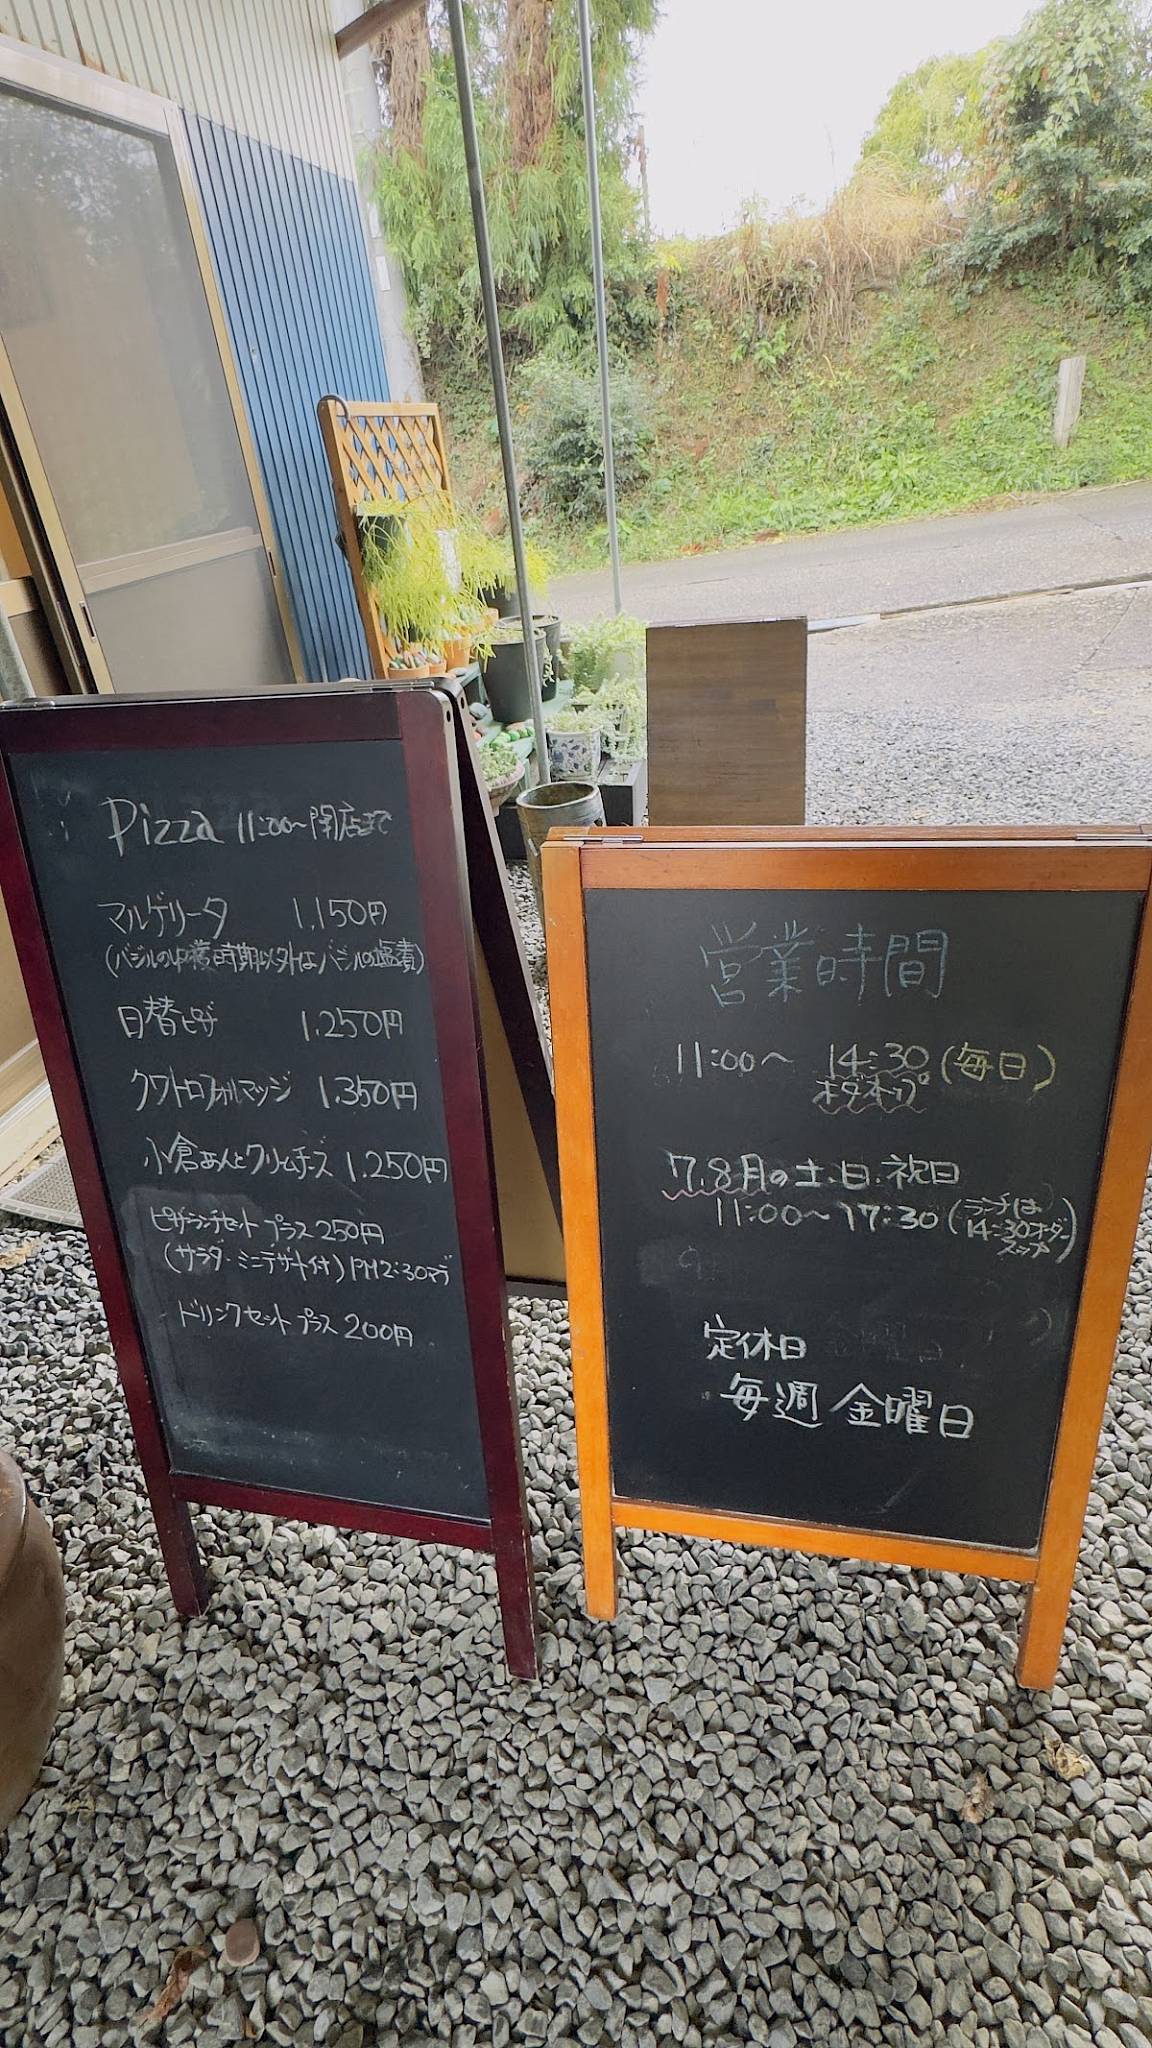 Pizza 11:00~閉店まで
マルゲリータ 1,150円
(バジルの収穫時期以外はバジルの塩漬)
日替ピザ 1,250円
クワトロフォルマッジ 1,350円
小倉あんとクリームチーズ 1,250円
ピザランチセット プラス250円
(サラダ・ミニデザート付) PM2:30マデ
ドリンクセット プラス200円
営業時間
11:00~ 14:30 (毎日)
7.8月の土.日.祝日
11:00~17:30 (ランチは
14:30オーダー
ストップ)
定休日
毎週 金曜日